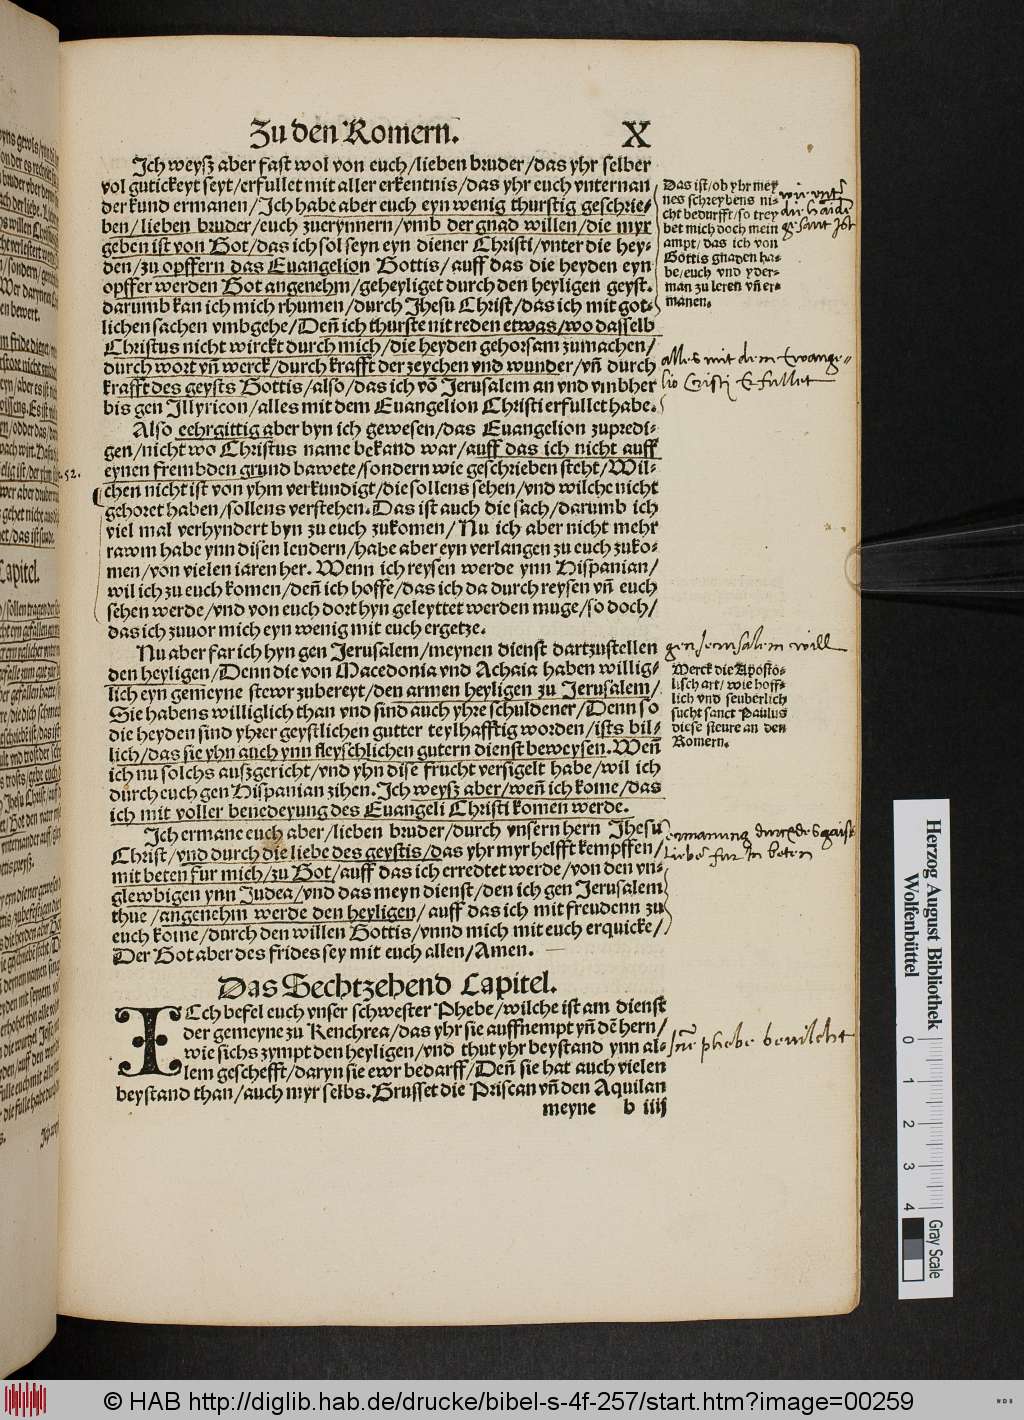 Zu den Romern. X
Ich weysz aber fast wol von euch/lieben bruder/das yhr selber
vol gutickeyt seyt/erfullet mit aller erkentnis/das yhr euch vnternan
der kund ermanen/Ich habe aber euch eyn wenig thurstig geschrie-
ben/lieben bruder/euch zuerynnern/vmb der gnad willen/die myr
geben ist von Got/das ich sol seyn eyn diener Christi/vnter die hey-
den/zu opffern das Euangelion Gottis/auff das die heyden eyn
opffer werden Got angenehm/geheyliget durch den heyligen geyst.
darumb kan ich mich rhumen/durch Jhesu Christ/das ich mit got-
lichen sachen vmbgehe/Deñ ich thurste nit reden etwas/wo dasselb
Christus nicht wirckt durch mich/die heyden gehorsam zumachen/
durch wort vñ werck/durch krafft der zeychen vnd wunder/vñ durch
krafft des geysts Gottis/also/das ich võ Jerusalem an vnd vmbher
bis gen Illyricon/alles mit dem Euangelion Christi erfullet habe.
Das ist/ob yhr mey
nes schreybens ni-
cht bedurfft/so trey
bet mich doch mein
ampt/das ich von
Gottis gnaden ha-
be/euch vnd yder-
man zu leren vñ er-
manen.
alles mit dem Ewange-
lio Cristi Erfullet
Also eehrgittig aber byn ich gewesen/das Euangelion zupredi-
gen/nicht wo Christus name bekand war/auff das ich nicht auff
eynen frembden grund bawete/sondern wie geschrieben steht/Wil-
chen nicht ist von yhm verkundigt/die sollens sehen/vnd wilche nicht
gehoret haben/sollens verstehen. Das ist auch die sach/darumb ich
viel mal verhyndert byn zu euch zukomen/Nu ich aber nicht mehr
rawm habe ynn disen lendern/habe aber eyn verlangen zu euch zuko-
men/von vielen iaren her. Wenn ich reysen werde ynn Hispanian/
wil ich zu euch komen/deñ ich hoffe/das ich da durch reysen vñ euch
sehen werde/vnd von euch dort hyn geleyttet werden muge/so doch/
das ich zuuor mich eyn wenig mit euch ergetze.
52.
Nu aber far ich hyn gen Jerusalem/meynen dienst dartzustellen
den heyligen/Denn die von Macedonia vnd Achaia haben willig-
lich eyn gemeyne stewr zubereyt/den armen heyligen zu Jerusalem/
Sie habens williglich than vnd sind auch yhre schuldener/Denn so
die heyden sind yhrer geystlichen gutter teylhafftig worden/ists bil-
lich/das sie yhn auch ynn fleyschlichen gutern dienst beweysen. Weñ
ich nu solchs auszgericht/vnd yhn dise frucht versigelt habe/wil ich
durch euch gen Hispanian zihen. Ich weysz aber/weñ ich kome/das
ich mit voller benedeyung des Euangeli Christi komen werde.
gen Jerusalem will
Merck die Aposto-
lisch art/wie hoff-
lich vnd seuberlich
sucht sanct Paulus
diese steure an den
Romern.
Ich ermane euch aber/lieben bruder/durch vnsern hern Jhesu
Christ/vnd durch die liebe des geystis/das yhr myr helfft kempffen/
mit beten fur mich/zu Got/auff das ich erredtet werde/von den vn-
glewbigen ynn Judea/vnd das meyn dienst/den ich gen Jerusalem
thue/angenehm werde den heyligen/auff das ich mit freudenn zu
euch kome/durch den willen Gottis/vnnd mich mit euch erquicke/
Der Got aber des frides sey mit euch allen/Amen.
ermanung durch des gaist
liebe fur in beten
Das Sechtzehend Capitel.
ICh befel euch vnser schwester Phebe/wilche ist am dienst
der gemeyne zu Kenchrea/das yhr sie auffnempt yñ dẽ hern/
wie sichs zympt den heyligen/vnd thut yhr beystand ynn al-
lem geschefft/daryn sie ewr bedarff/Deñ sie hat auch vielen
beystand than/auch myr selbs. Grusset die Priscan vñ den Aquilan
meyne b iiij
phebe bevilcht
Herzog August Bibliothek
Wolfenbüttel
0 1 2 3 4
Gray Scale
© HAB http://diglib.hab.de/drucke/bibel-s-4f-257/start.htm?image=00259